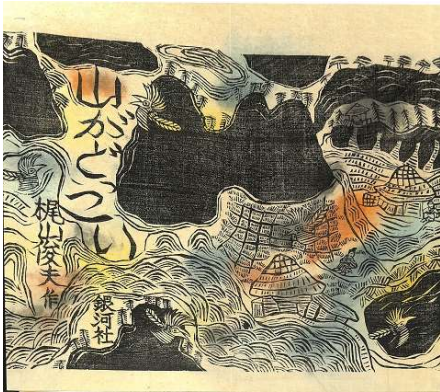 山がどっこい
梶山俊夫作
銀河社